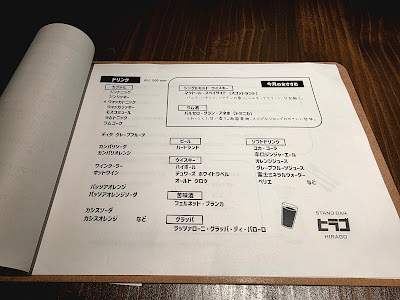 ドリンク
ALL 500 yen
カクテル
ジントニック
ジンリッキー
ウォッカトニック
ウォッカリッキー
モスコミュール
ラムトニック
ラムコーク
ディタ グレープフルーツ
カンパリソーダ
カンパリオレンジ
ヴィンクーラー
ホットワイン
パッソアオレンジ
パッソアオレンジソーダ
カシスソーダ
カシスオレンジ など
今月のおすすめ
シングルモルト ウイスキー
マクダフ・スペイサイド (スコットランド)
ラム酒
バルセロ・グラン・アネホ (ドミニカ)
ビール
ハートランド
ウイスキー
ハイボール
デュワーズ ホワイトラベル
オールド クロウ
苦味酒
フェルネット・ブランカ
グラッパ
ラッツァローニ・グラッパ・ディ・バローロ
ソフトドリンク
コカ・コーラ
辛口ジンジャーエール
オレンジジュース
グレープフルーツジュース
富士ミネラルウォーター
ペリエ など
STAND BAR
ヒラゴ
HIRAGO